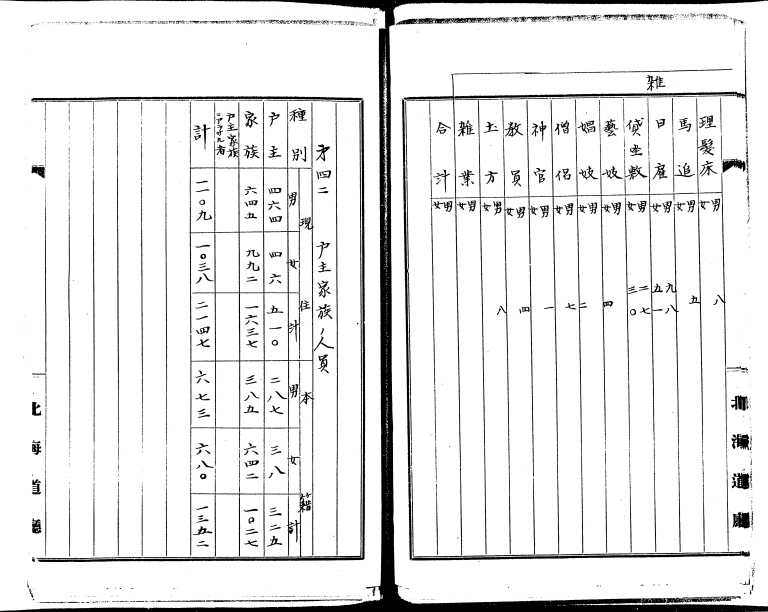 雑
理髪床 男 八 女
馬追 男 五 女
日雇 男 九八 女 五一
貸坐敷 男 二七 女 三〇
藝妓 男 女 四
娼妓 男 女 二
僧侶 男 七 女
神官 男 一 女
教員 男 四 女 八
土方 男 八 女
雑業 男 女
合計 男 女
北海道廳
才四二 戸主家族ノ人員
種別 現住 男 女 計 本籍 男 女 計
戸主 四六四 四六 五一〇 二八七 三八 三二五
家族 六四五 九九二 一六三七 三八五 六四二 一〇二七
戸主家族ニアラザル者
計 一一〇九 一〇三八 二一四七 六七三 六八〇 一三五二
北海道廳